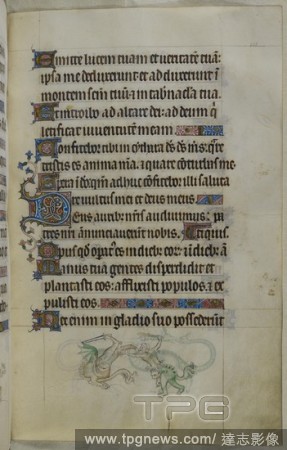 Emitte lucem tuam et veritatē tuā:
ipsa me deduxerunt et adduxerunt ī
montem scm̄ tuū et in tab̄nacl̄a tua.
Et introibo ad altare dei: ad deum q̄
letificat iuventutem meam.
Confitebor tibi in cythara d̄s d̄s m̄s: q̄re
tristis es anima m̄a ⁊ quare conturbas me
Spera ī deo qm̄ adhuc confitebor illi saluta
re vultus mei et deus meus
Deus aurib; nr̄is audivimus: pa
tres nr̄i annunciaverūt nobis.
Opus qd̄ opat̄s es in dieb; eor̄: ī dieb; ā
Manus tua gentes disperdidit et
plantasti eos: afflixisti populos ⁊ ex
pulisti eos.
Nec enim in gladio suo possederūt
TPG
www.tpgnews.com/ 達志影像